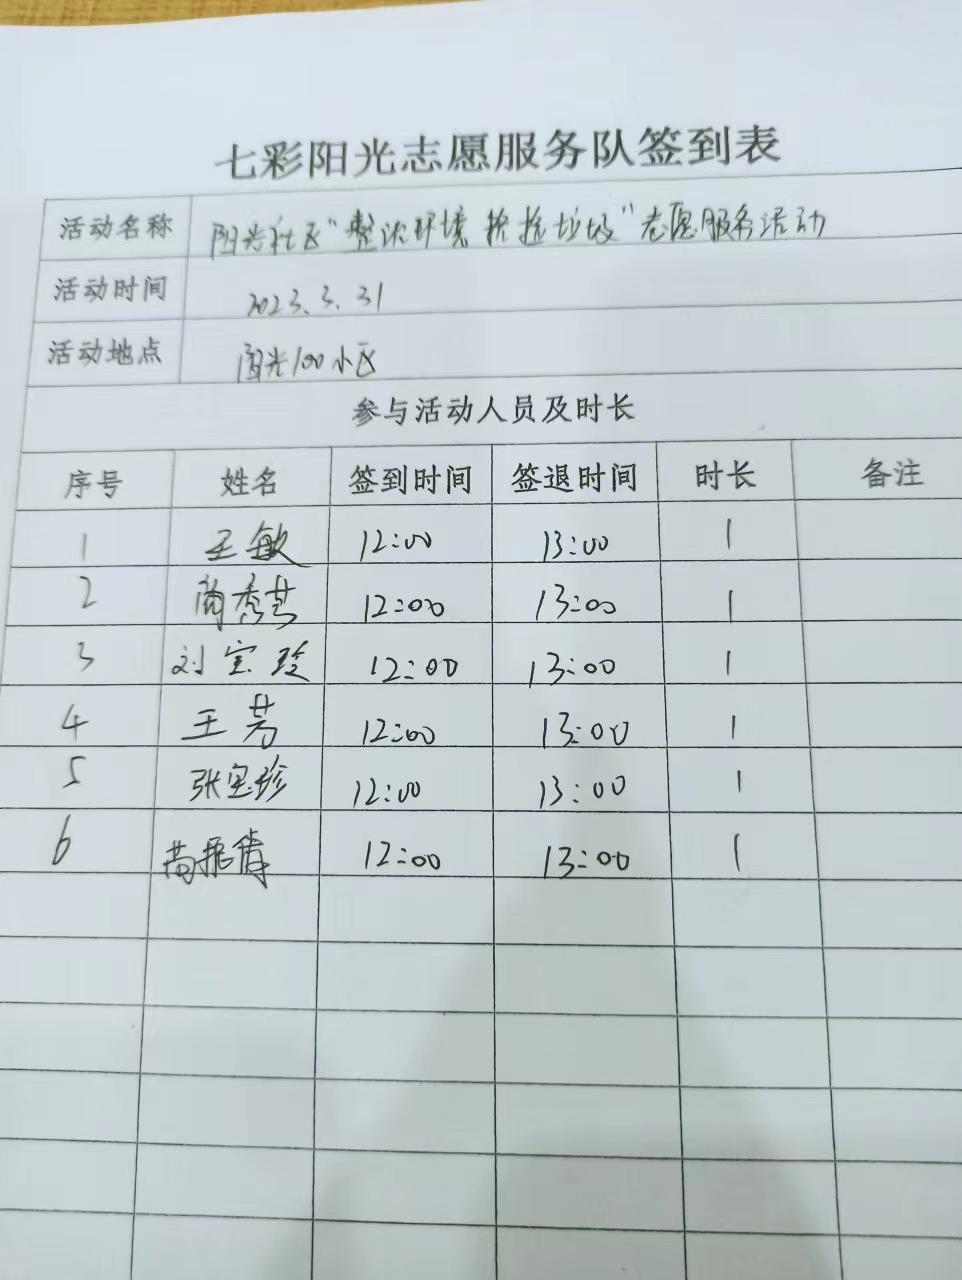 七彩阳光志愿服务队签到表
活动名称 阳光社区"整治环境 捡拾垃圾"志愿服务活动
活动时间 2023.3.31
活动地点 阳光100小区
参与活动人员及时长
序号 姓名 签到时间 签退时间 时长 备注
1 王敏 12:00 13:00 1
2 秀芸 12:00 13:00 1
3 刘宝玲 12:00 13:00 1
4 王芳 12:00 13:00 1
5 张宝珍 12:00 13:00 1
6 12:00 13:00 1